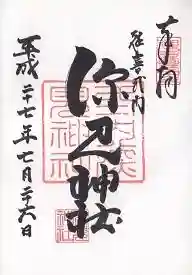 奉拝
延喜式内
弥刀神社
平成二十七年七月二十六日